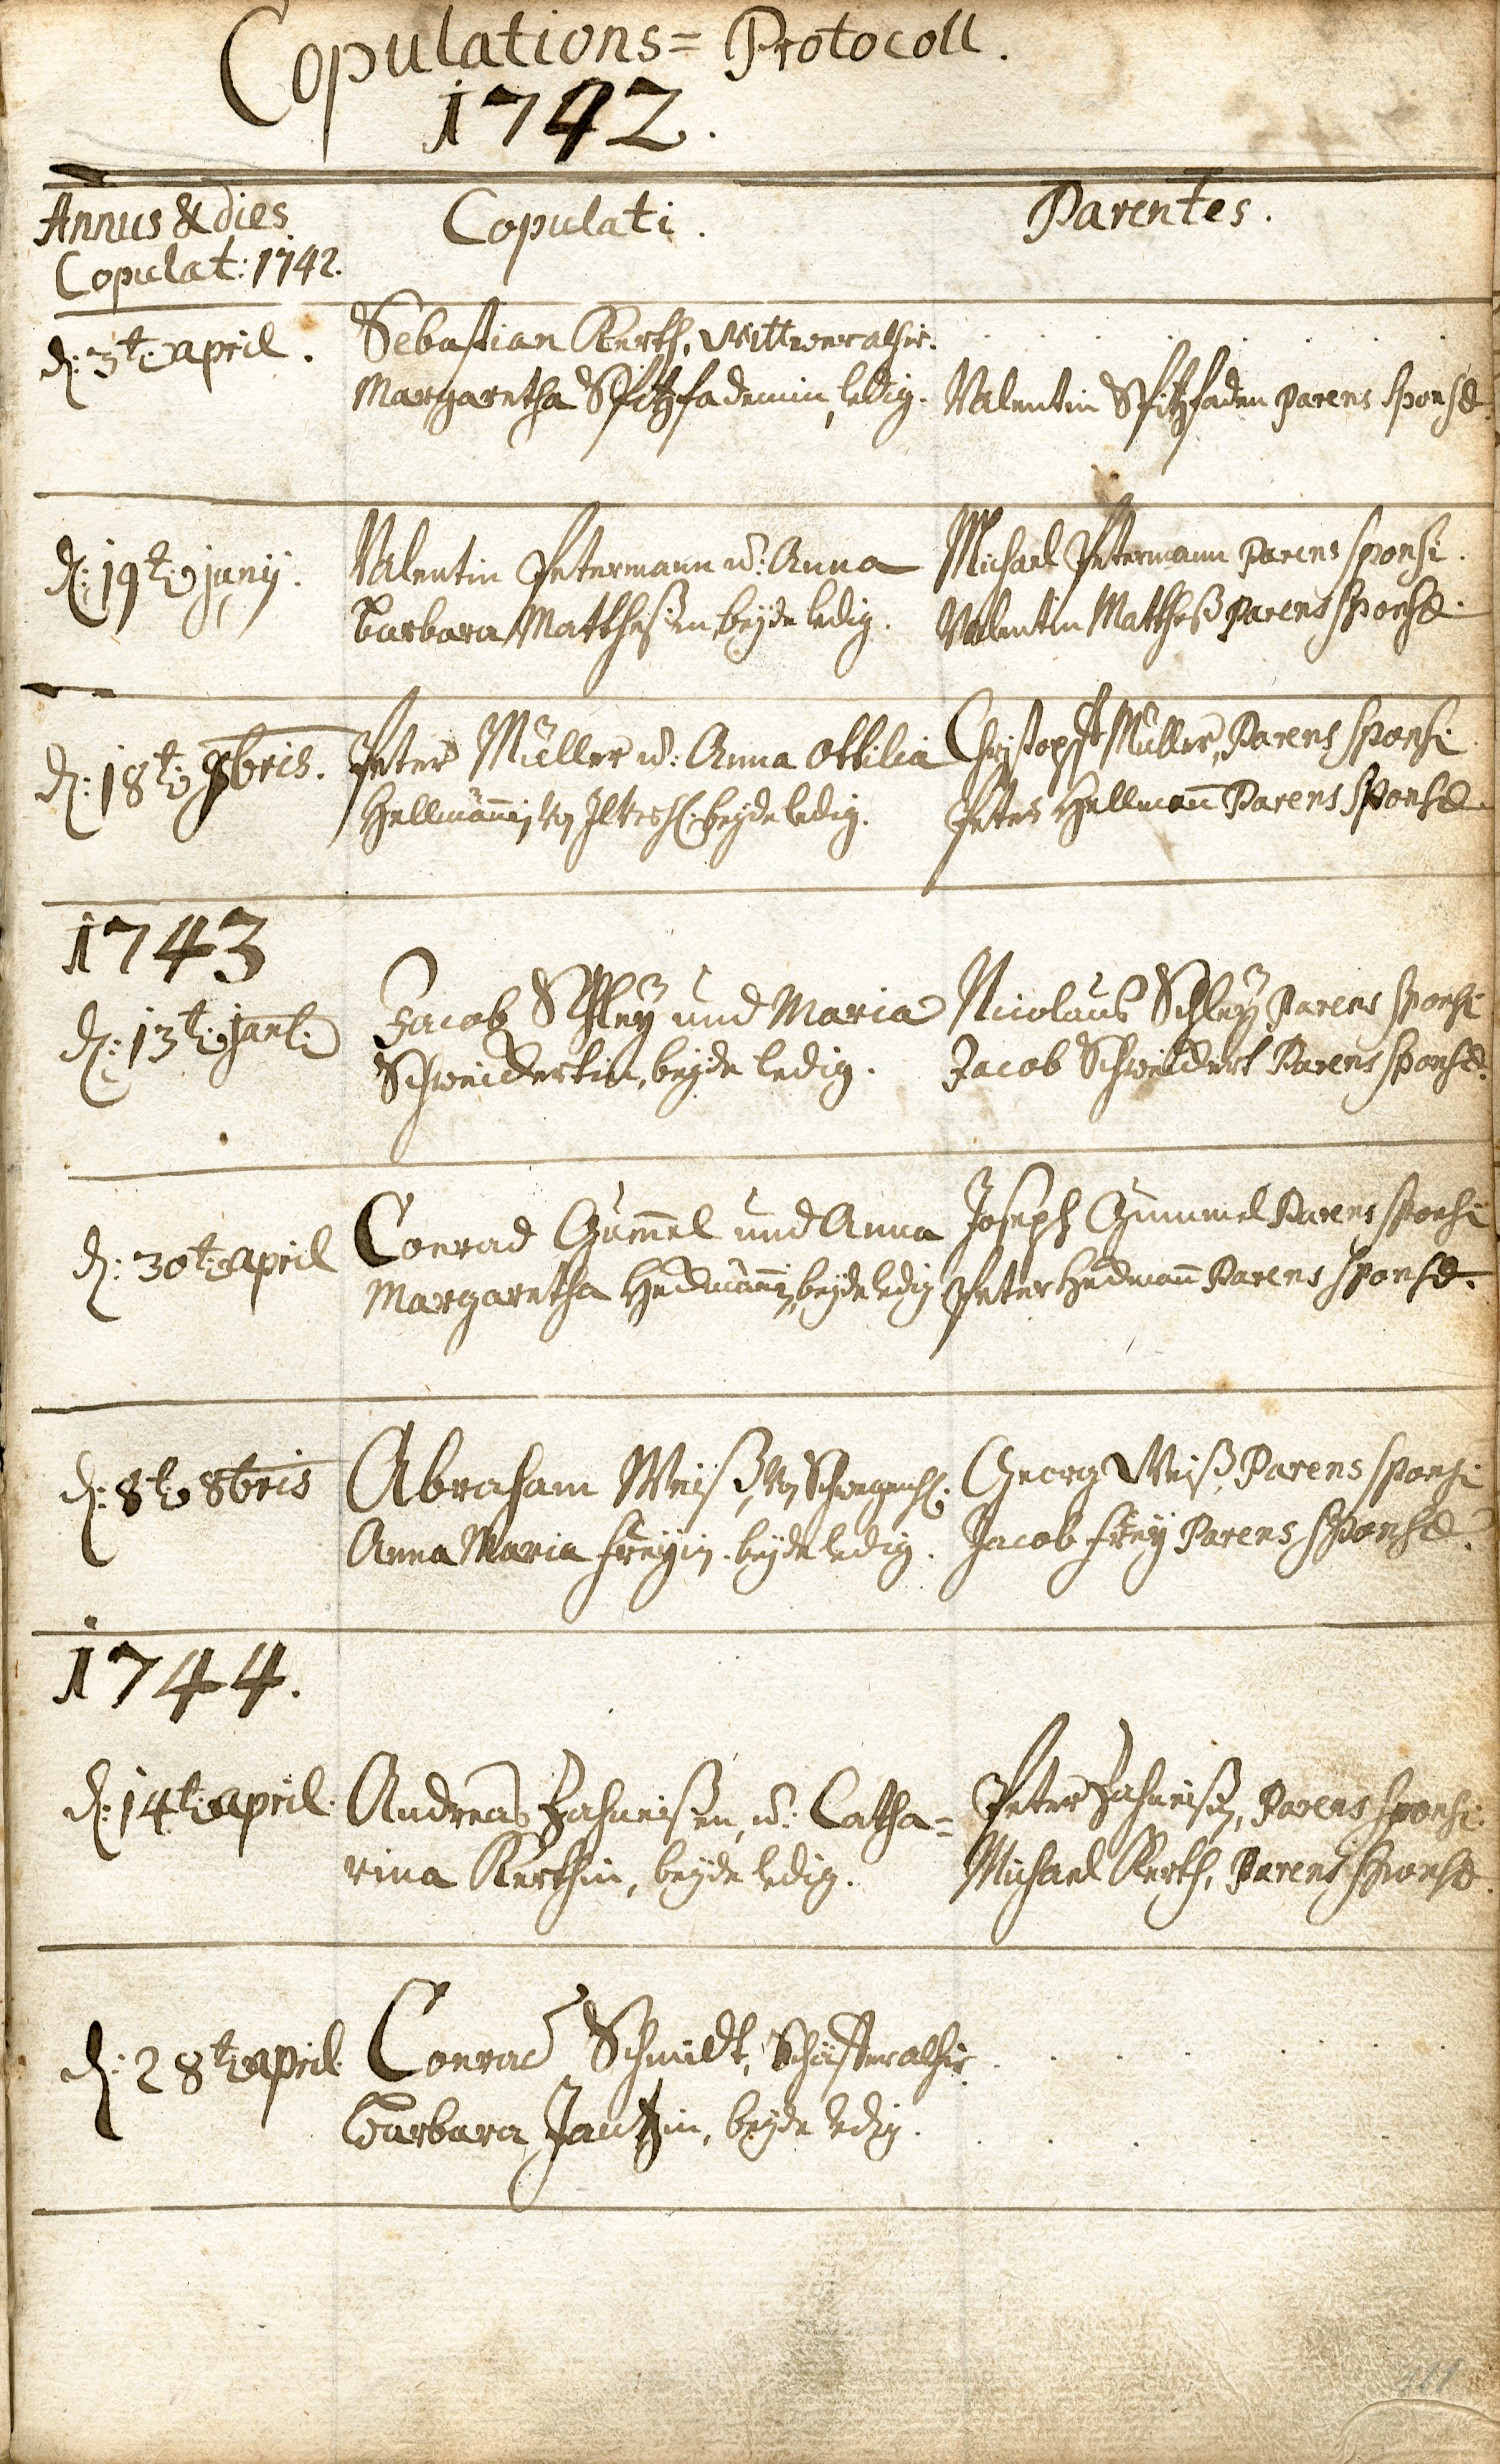 Copulations= Protocoll.
1742.
Annus & dies
Copulat: 1742.
Copulati.
Parentes.
d: 3t. april.
Sebastian Kerth, Wittwer alhir.
Margaretha Spitzfademin, ledig.
Valentin Spitzfaden Parens sponsæ
d: 19t. junij.
Valentin Petermann u: Anna
Barbara Matthesin, beyde ledig.
Michael Petermann Parens sponsi.
Valentin Matheß Parens sponsæ.
d: 18t. 9bris.
Peter Müller u: Anna Ottilia
Hellmännin von beyde ledig.
Christoph Müller, Parens sponsi
Peter Hellmañ Parens sponsæ
1743
d: 13t. janl:
Jacob Schley und Maria
Schweickertin, beyde ledig.
Nicolaus Schley Parens sponsi
Jacob Schweickert Parens sponsæ.
d: 30t. april
Conrad Gum̃el und Anna
Margaretha beyde ledig
Joseph Gummel Parens sponsi
Peter Parens sponsæ.
d: 8t. 8bris
Abraham Weiß, von
Anna Maria Freyin. beyde ledig.
Georg Weiß, Parens sponsi
Jacob Frey Parens sponsæ.
1744.
d: 14t. april.
Andreas Zahneisen, u: Catha=
rina Kerthin, beyde ledig.
Peter Zahneisen, Parens sponsi.
Michael Kerth, Parens sponsæ.
d: 28t. april.
Conrad Schmidt, Schäffer alhir
Barbara Jautzin, beyde ledig.